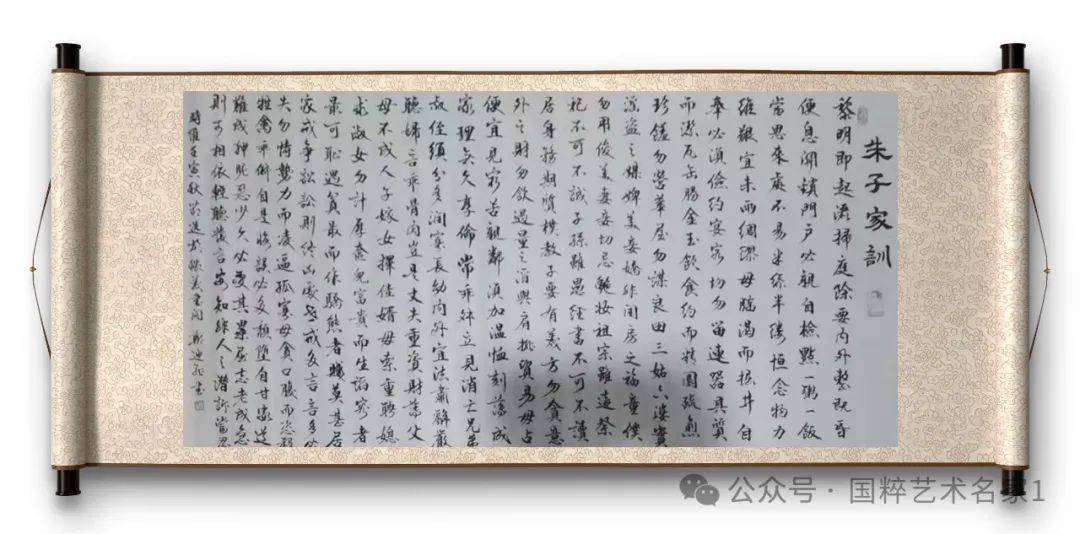 朱子家訓
黎明即起洒掃庭除要內外整既昏
便息關鎖門戶必親自檢點一粥一飯
當思來處不易半絲半縷恒念物力
維艱宜未雨綢繆毋臨渴而掘井自
奉必須儉約宴客切勿留連器具質
而潔瓦缶勝金玉飲食約而精園蔬
珍饈勿營華屋勿謀良田三姑六婆實
淫盜之媒婢美妾嬌非閨房之福童僕
勿用俊美妻妾切忌艷妝祖宗雖遠祭
祀不可不誠子孫雖愚經書不可不讀
居身務期質樸教子要有義方勿貪意
外之財勿飲過量之酒與肩挑貿易毋占
便宜見窮苦親鄰須加溫恤刻薄成
家理無久享倫常乖舛立見消亡兄弟
叔侄須分多潤寡長幼內外宜法肅辭嚴
聽婦言乖骨肉豈是丈夫重資財薄父
母不成人子嫁女擇佳婿毋索重聘媳
求淑女勿計厚奩見富貴而生諂容者
最可恥遇貧窮而作驕態者賤莫甚居
家戒爭訟訟則終凶處世戒多言言多必
失勿恃勢力而凌逼孤寡毋貪口腹而恣殺
牲禽乖僻自是悔誤必多頹墮自甘家道
難成狎昵惡少久必受其累屈志老成急
則可相依輕聽發言安知非人之譖訴當忍
時維壬寅秋 書
公众号·国粹艺术名家1